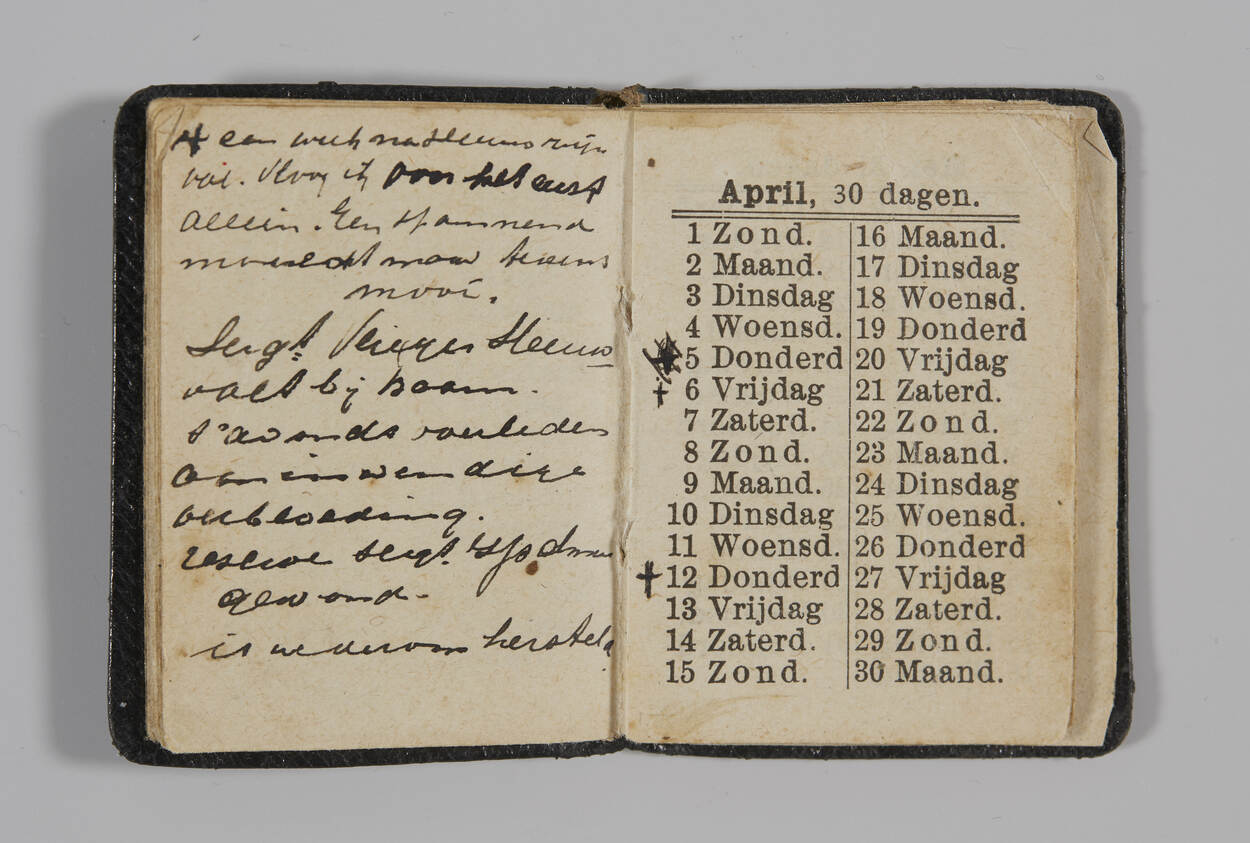 een week na Steeuws zijn
val. Vloog ik voor het eerst
alleen. Een spannend
moment maar tevens
mooi.
Sergt. Vlieger Steeuw
valt bij Baarn.
s'avonds overleden
aan inwendige
verbloeding.
reserve sergt.
gewond.
is wederom hersteld
April, 30 dagen.
1 Zond.
2 Maand.
3 Dinsdag
4 Woensd.
5 Donderd
6 Vrijdag
7 Zaterd.
8 Zond.
9 Maand.
10 Dinsdag
11 Woensd.
12 Donderd
13 Vrijdag
14 Zaterd.
15 Zond.
16 Maand.
17 Dinsdag
18 Woensd.
19 Donderd
20 Vrijdag
21 Zaterd.
22 Zond.
23 Maand.
24 Dinsdag
25 Woensd.
26 Donderd
27 Vrijdag
28 Zaterd.
29 Zond.
30 Maand.